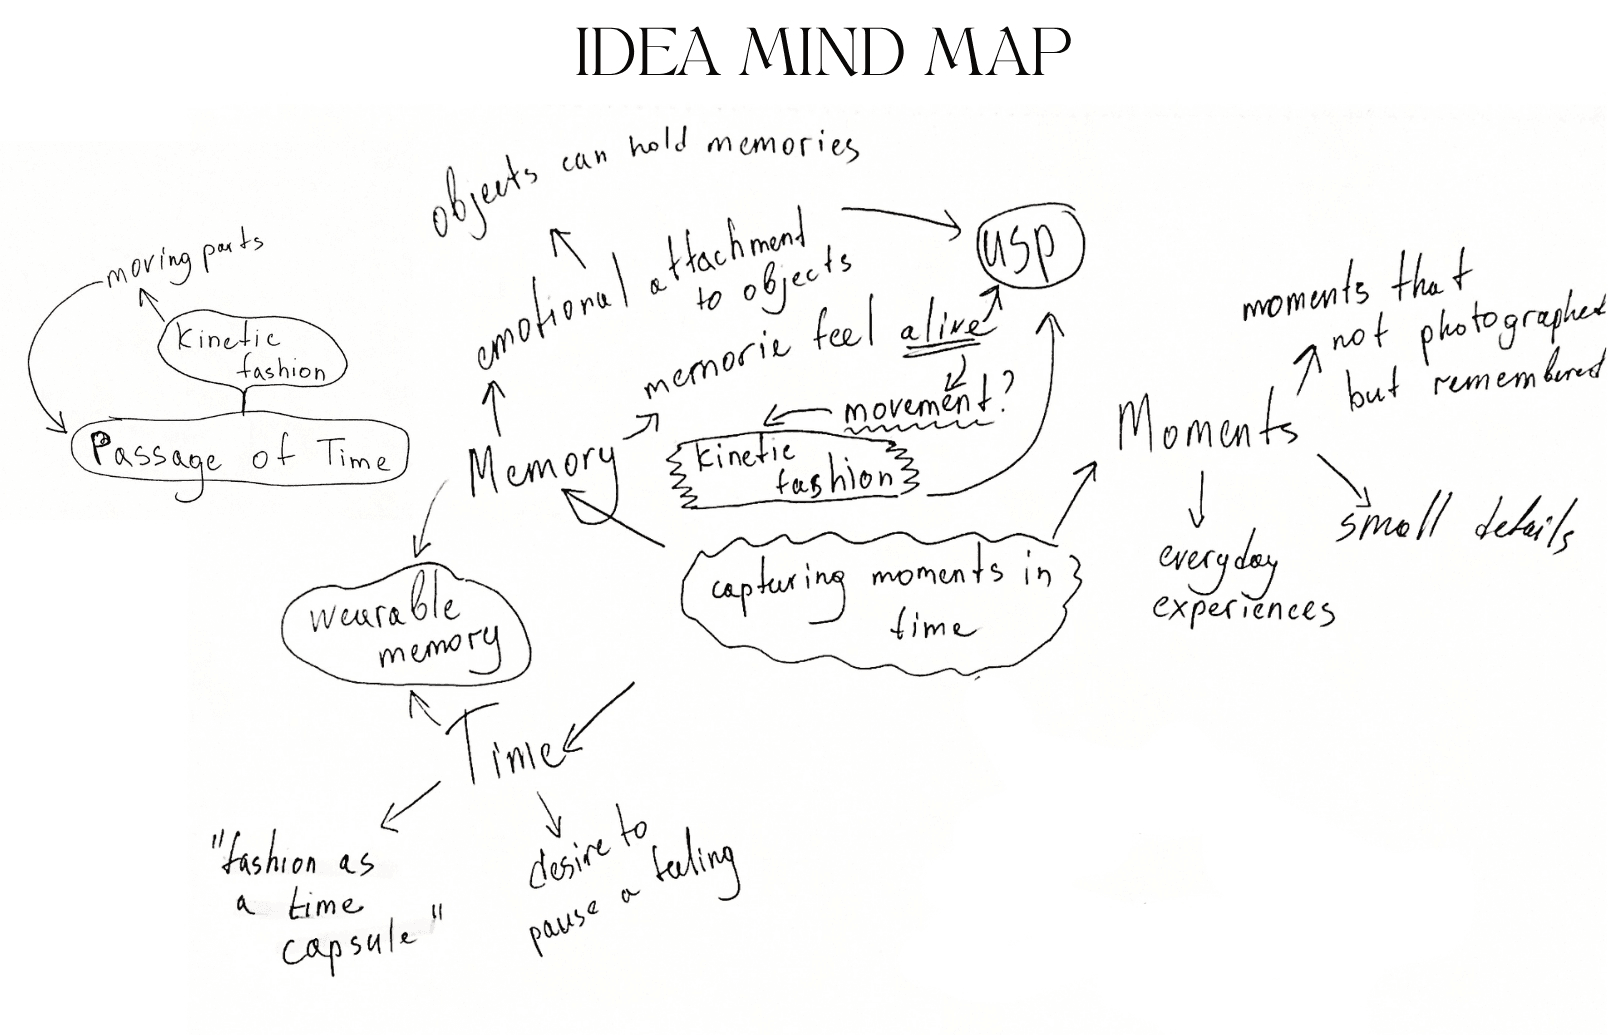 IDEA MIND MAP
objects can hold memories
emotional attachment
to objects
usp
memorie feel alive
movement?
kinetic
fashion
moving parts
Kinetic
fashion
Passage of Time
Memory
capturing moments in
time
Moments
moments that
not photographed
but remembered
everyday
experiences
small details
wearable
memory
Time
"fashion as
a time
capsule"
desire to
pause a feeling